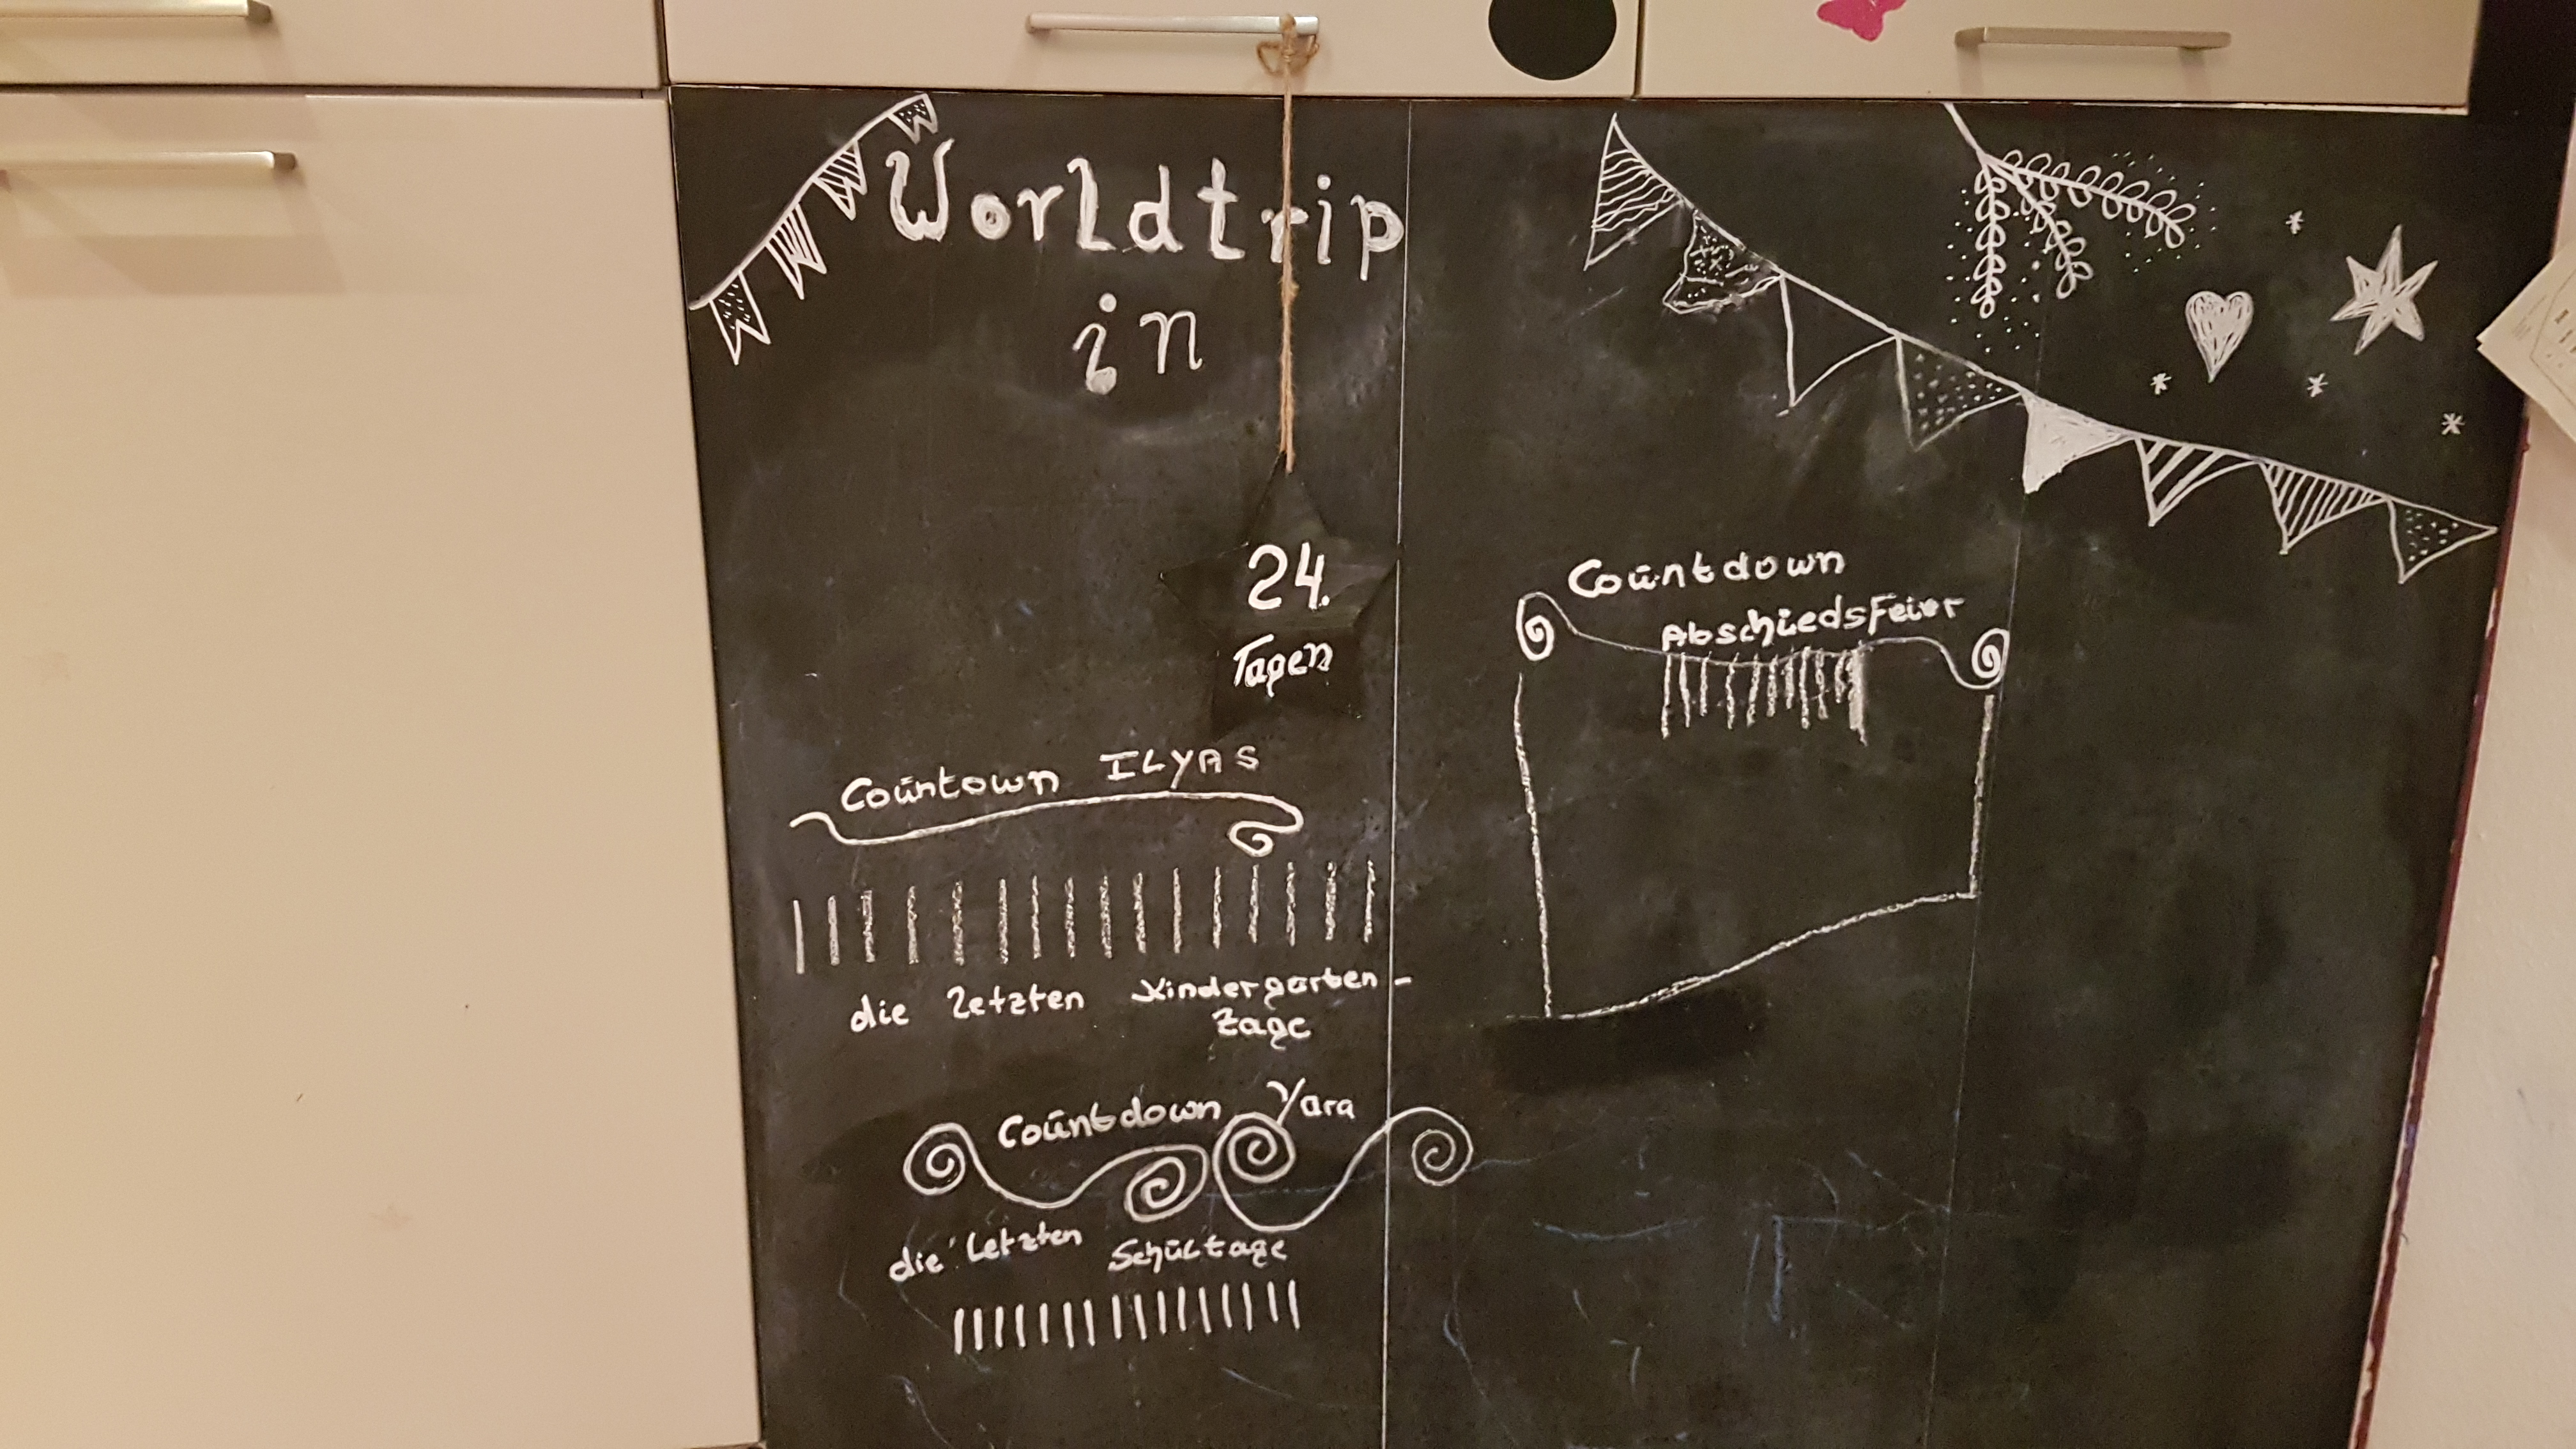 Worldtrip
in
24.
Tagen
Countown ILYAS
die letzten Kindergarten-
tage
Countdown Yara
die letzten Schultage
Countdown
Abschiedsfeier